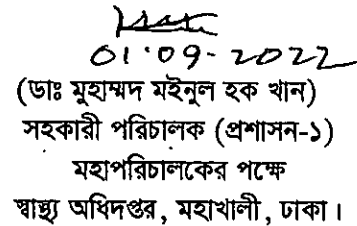 01.09-2022
(ডাঃ মুহাম্মদ মইনুল হক খান)
সহকারী পরিচালক (প্রশাসন-১)
মহাপরিচালকের পক্ষে
স্বাস্থ্য অধিদপ্তর, মহাখালী, ঢাকা।